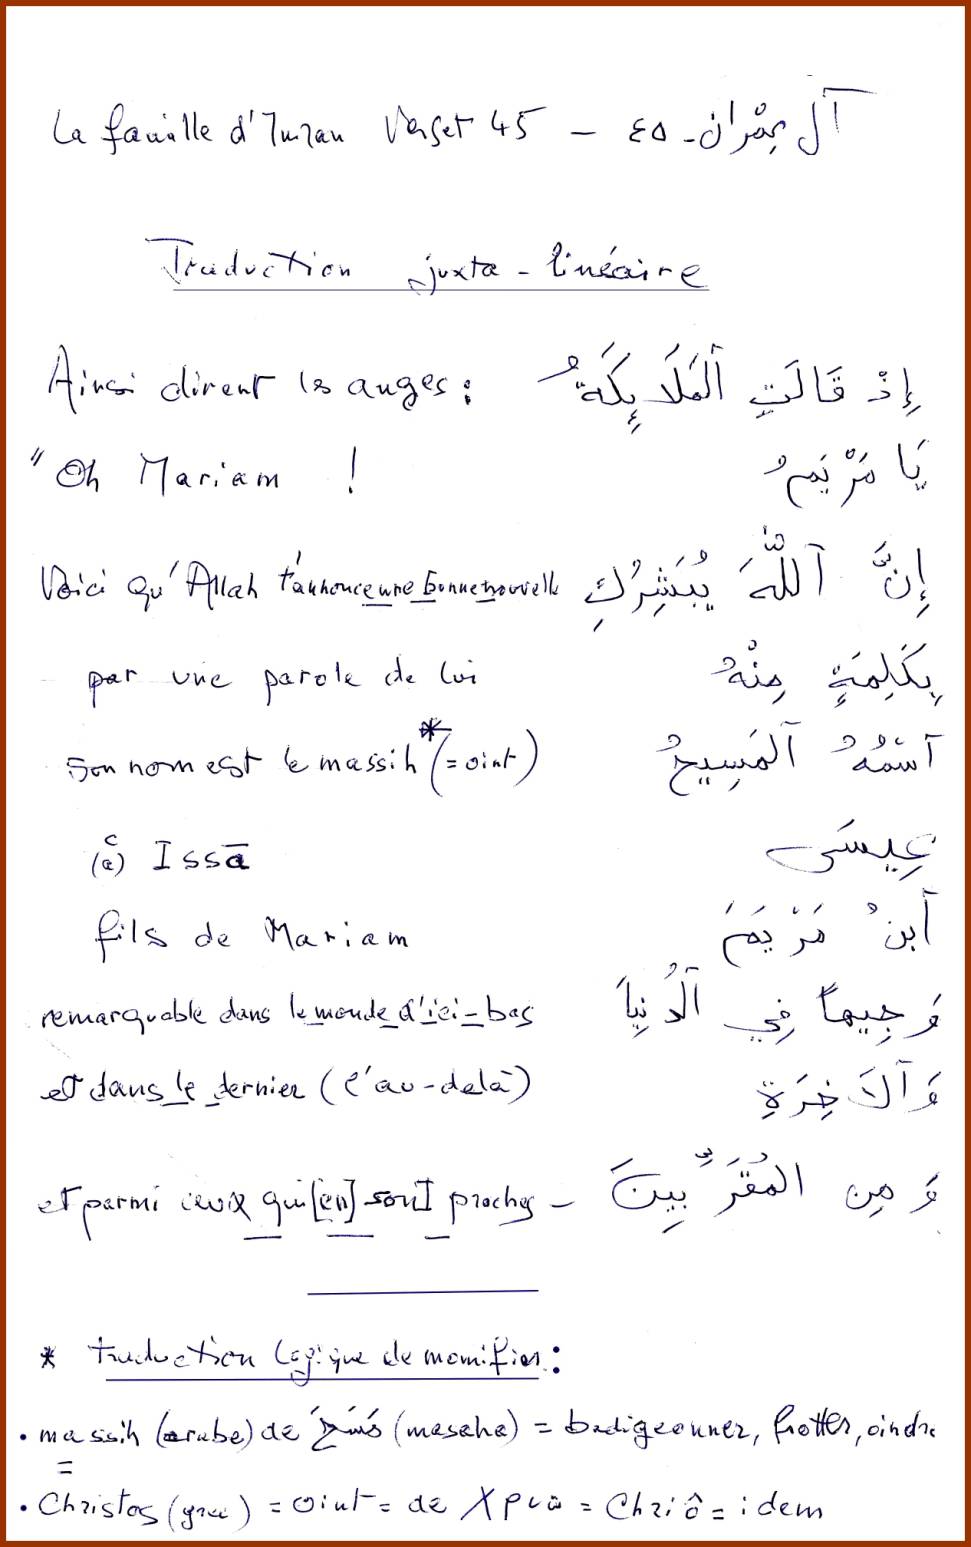 La famille d'Imran Verset 45 – آل عِمْران - ٤٥
Traduction juxta-linéaire
Ainsi dirent les anges : إِذْ قَالَتِ ٱلْمَلَايِكَةُ
"Oh Mariam ! يَا مَرْيَمُ
Voici qu'Allah t'annonce une bonne nouvelle إِنَّ ٱللَّهَ يُبَشِّرُكِ
par une parole de lui بِكَلِمَةٍ مِنْهُ
son nom est le massih* (= oint) ٱسْمُهُ ٱلمَسِيحُ
Issā عِيسَى
fils de Mariam ٱبنُ مَرْيَمَ
remarquable dans le monde d'ici-bas وَجِيهاً فِي ٱلدُّنيَا
et dans le dernier (l'au-delà) وَٱلآخِرَةِ
et parmi ceux qui [en] sont proches – وَمِن المُقَرَّبِينَ
* traduction logique de :
• massih (arabe) de مَسَحَ (masaha) = badigeonner, frotter, oindre
=
• Christos (grec) = oint = de Χριω = Chriô = idem